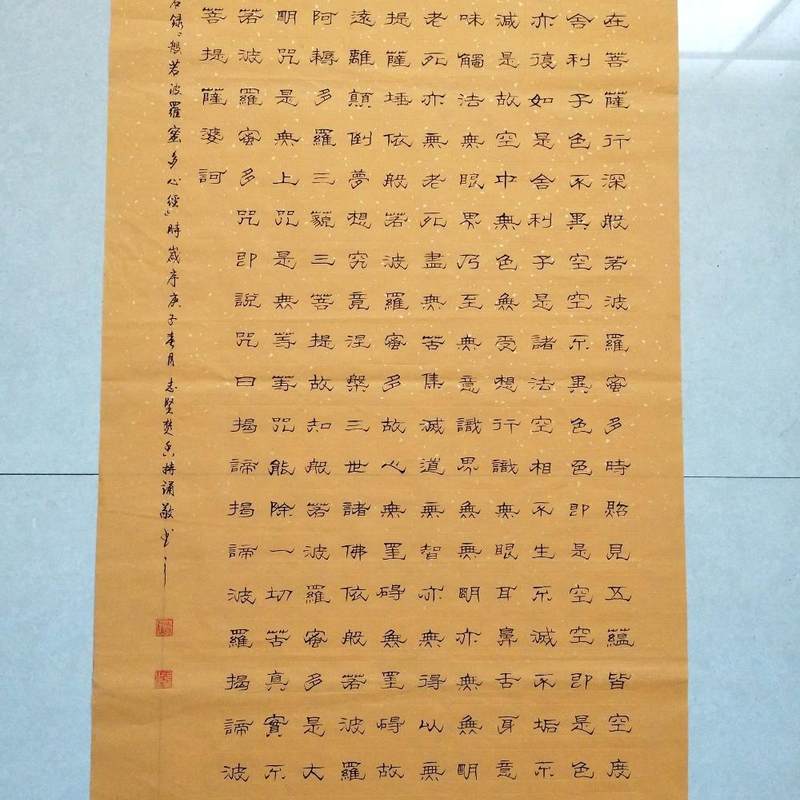 在菩薩行深般若波羅蜜多時照見五蘊皆空度
舍利子色不異空空不異色色即是空空即是色
亦復如是舍利子是諸法空相不生不滅不垢不
減是故空中無色無受想行識無眼耳鼻舌身意
味觸法無眼界乃至無意識界無無明亦無無明
老死亦無老死盡無苦集滅道無智亦無得以無
提薩埵依般若波羅蜜多故心無罣碍無罣碍故
遠離顛倒夢想究竟涅槃三世諸佛依般若波羅
阿耨多羅三藐三菩提故知般若波羅蜜多是大
明咒是無上咒是無等等咒能除一切苦真實不
若波羅蜜多咒即說咒曰揭諦揭諦波羅揭諦波
菩提薩婆訶
錄『般若波羅蜜多心經』時歲序庚子春月志堅焚香持誦敬書